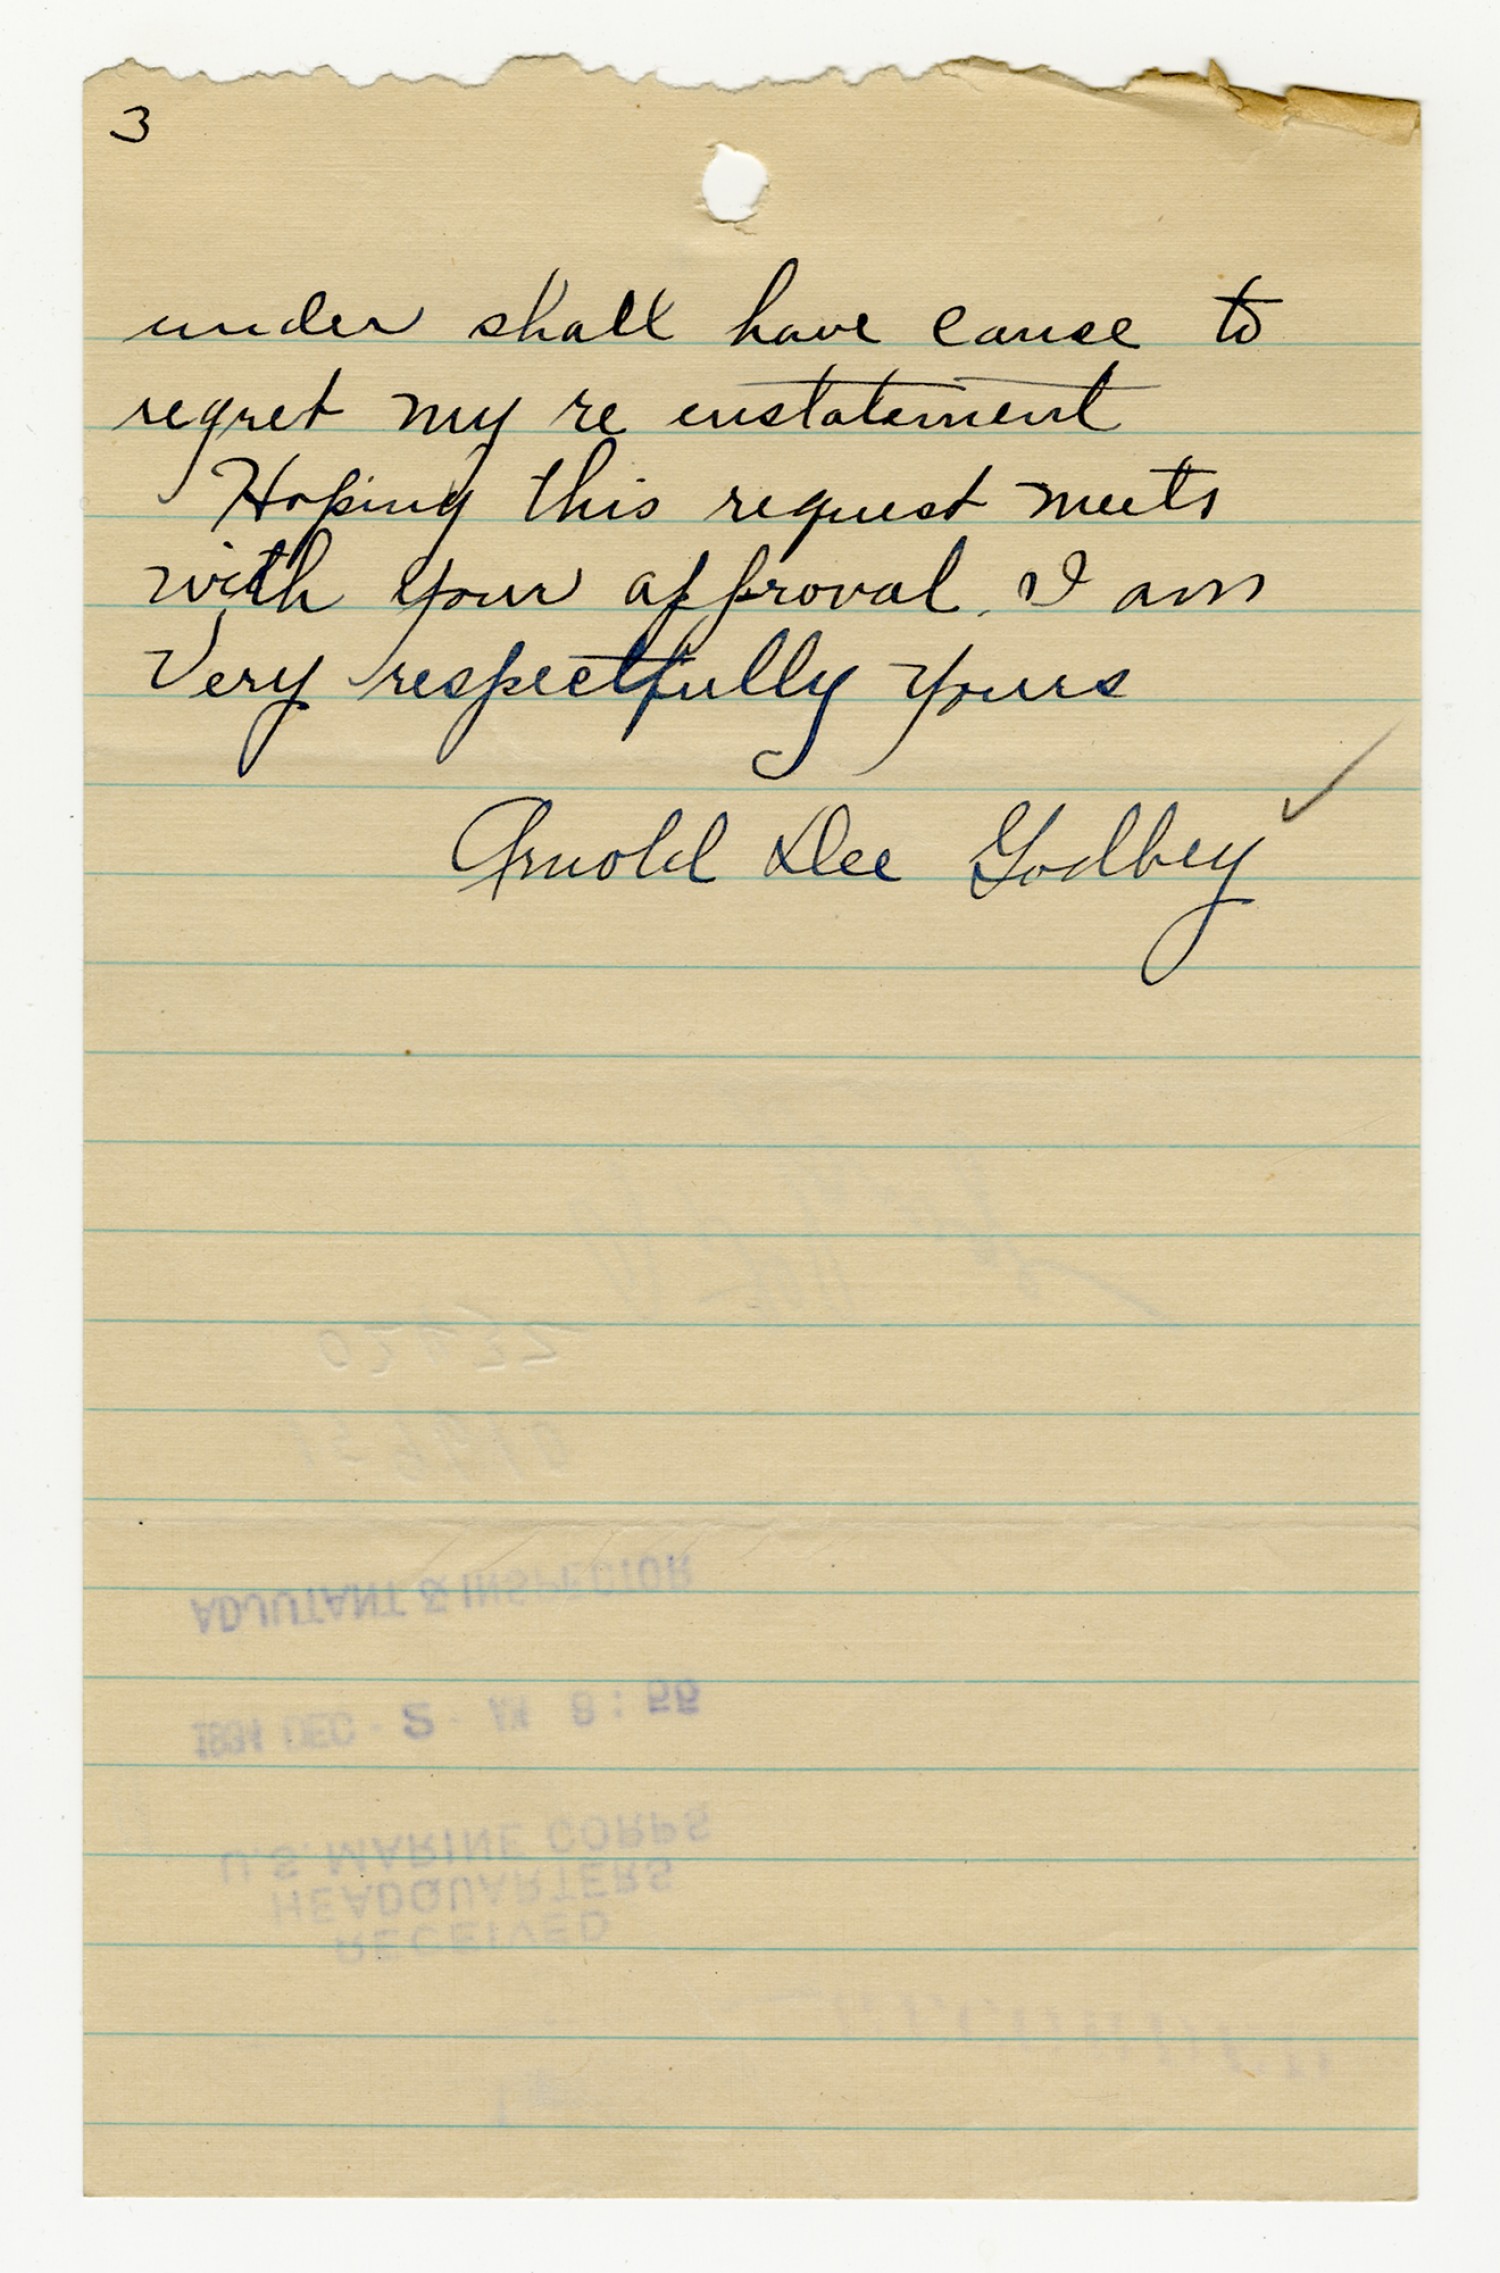 3
under shall have cause to
regret my re enstatement
Hoping this request meets
with your approval. I am
Very respectfully yours
Arnold Dee Godbey
ADJUTANT & INSPECTOR
1934 DEC - 2 - AM 8:55
U.S. MARINE CORPS
HEADQUARTERS
RECEIVED